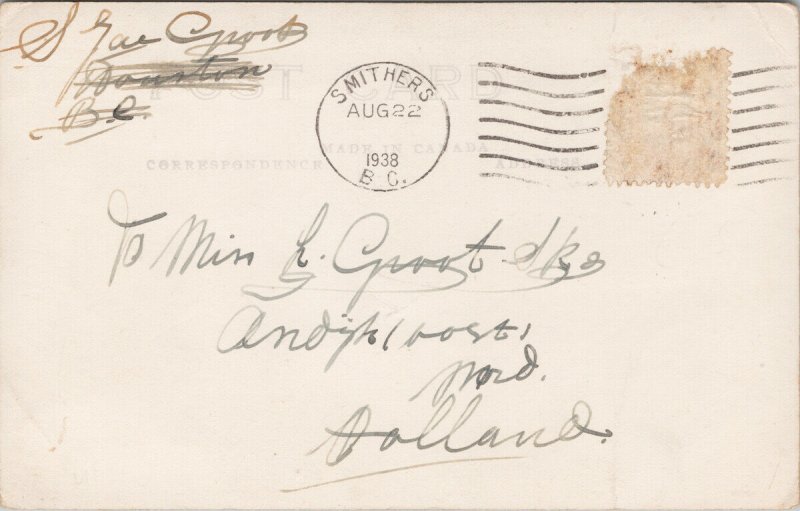 Groot
Houston
B.C.
POST CARD
SMITHERS
AUG 22
1938
B.C.
MADE IN CANADA
CORRESPONDENCE
ADDRESS
To Miss L. Groot
Andijk (oost)
Nord.
Holland.